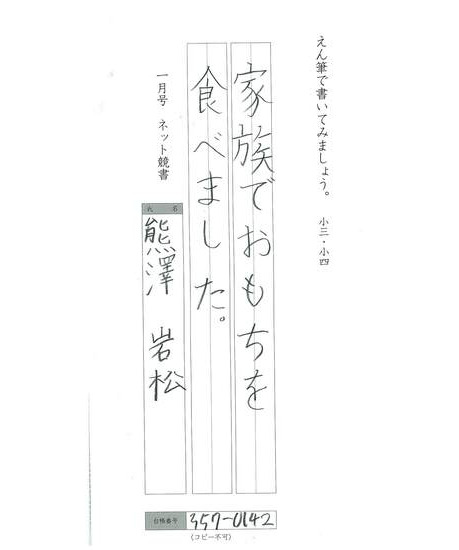 えん筆で書いてみましょう。 小三・小四
家族でおもちを
食べました。
一月号 ネット競書
氏名
熊澤 岩松
台帳番号 357-0142
(コピー不可)